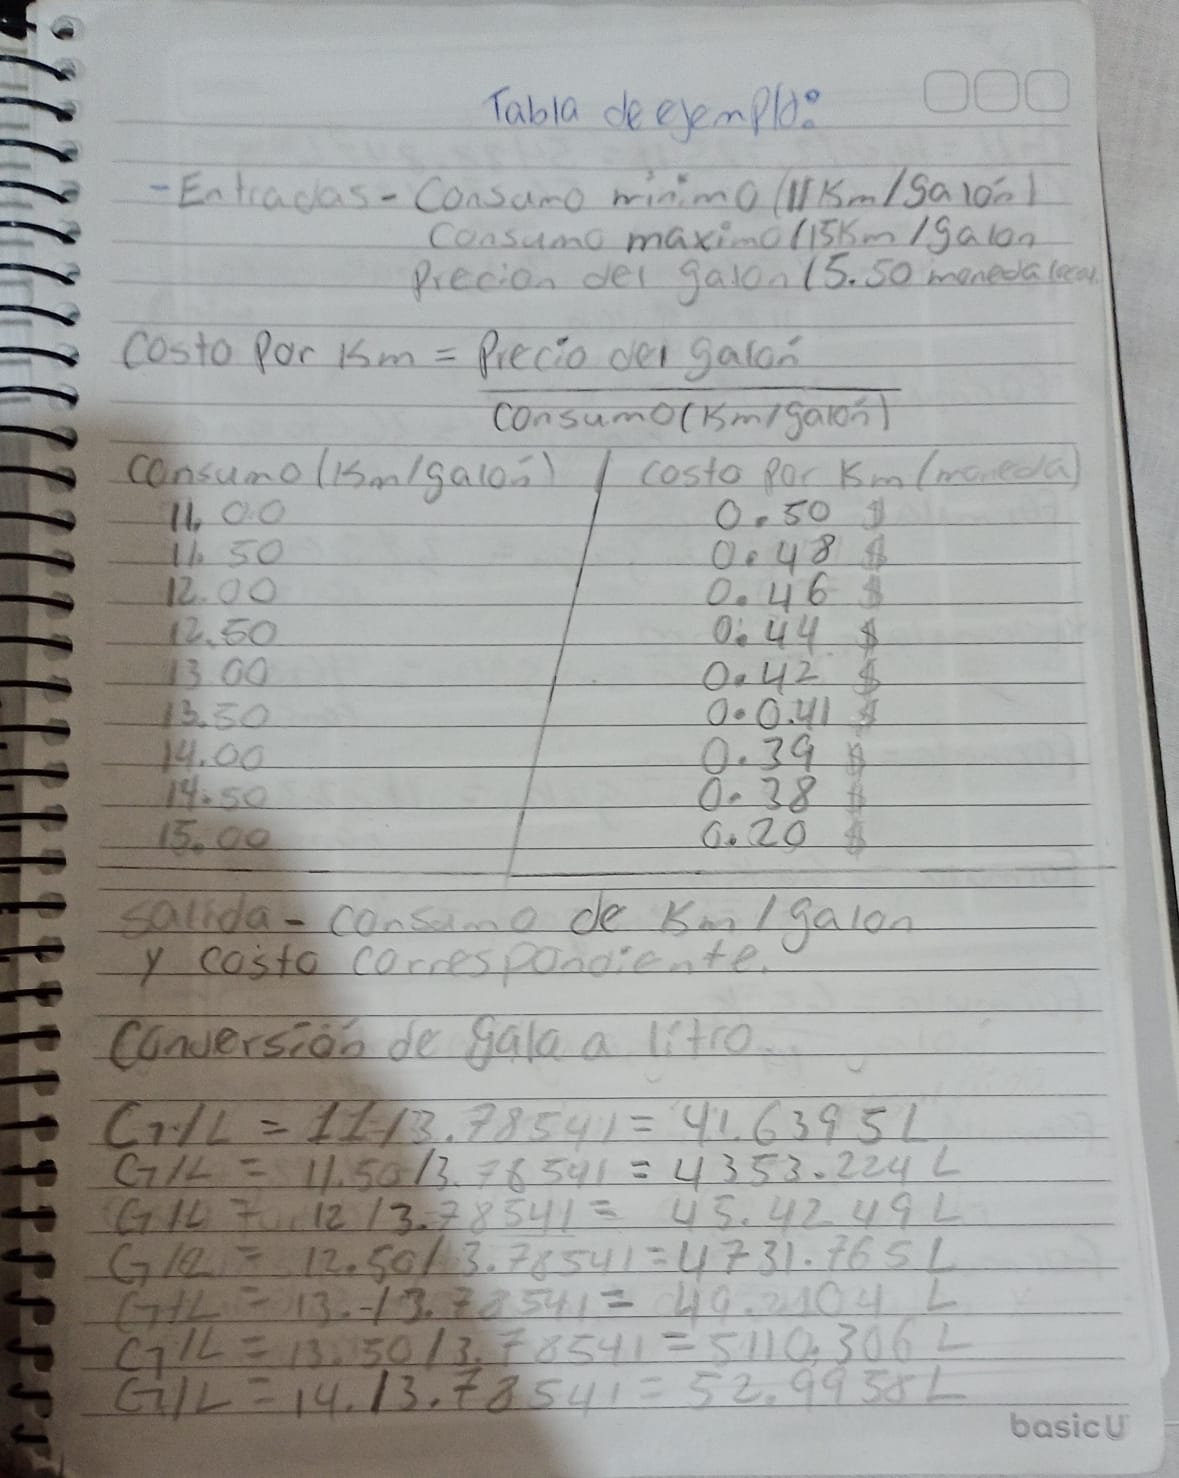 Tabla de ejemplo:
-Entradas - Consumo mínimo (11 Km/galón)
Consumo maximo (15Km/galon
Precion del galon (5.50 moneda local
Costo Por Km = Precio del galón
Consumo (Km/galón)
Consumo (Km/galón) / Costo Por Km (moneda)
11.00 0.50 $
11.50 0.48 $
12.00 0.46 $
12.50 0.44 $
13.00 0.42 $
13.50 0.0.41 $
14.00 0.39 $
14.50 0.38 $
15.00 0.20 $
Salida - Consumo de Km/galon
y costo correspondiente.
Conversión de gala a litro.
G/L = 11/3.78541 = 41.6395L
G/L = 11.50/3.78541 = 4353.224L
G/L = 12/3.78541 = 45.4249L
G/L = 12.50/3.78541 = 4731.765L
G/L = 13.-/3.78541 = 49.2104 L
G/L = 13.50/3.78541 = 5110.306L
G/L = 14./3.78541 = 52.9958L
basicU